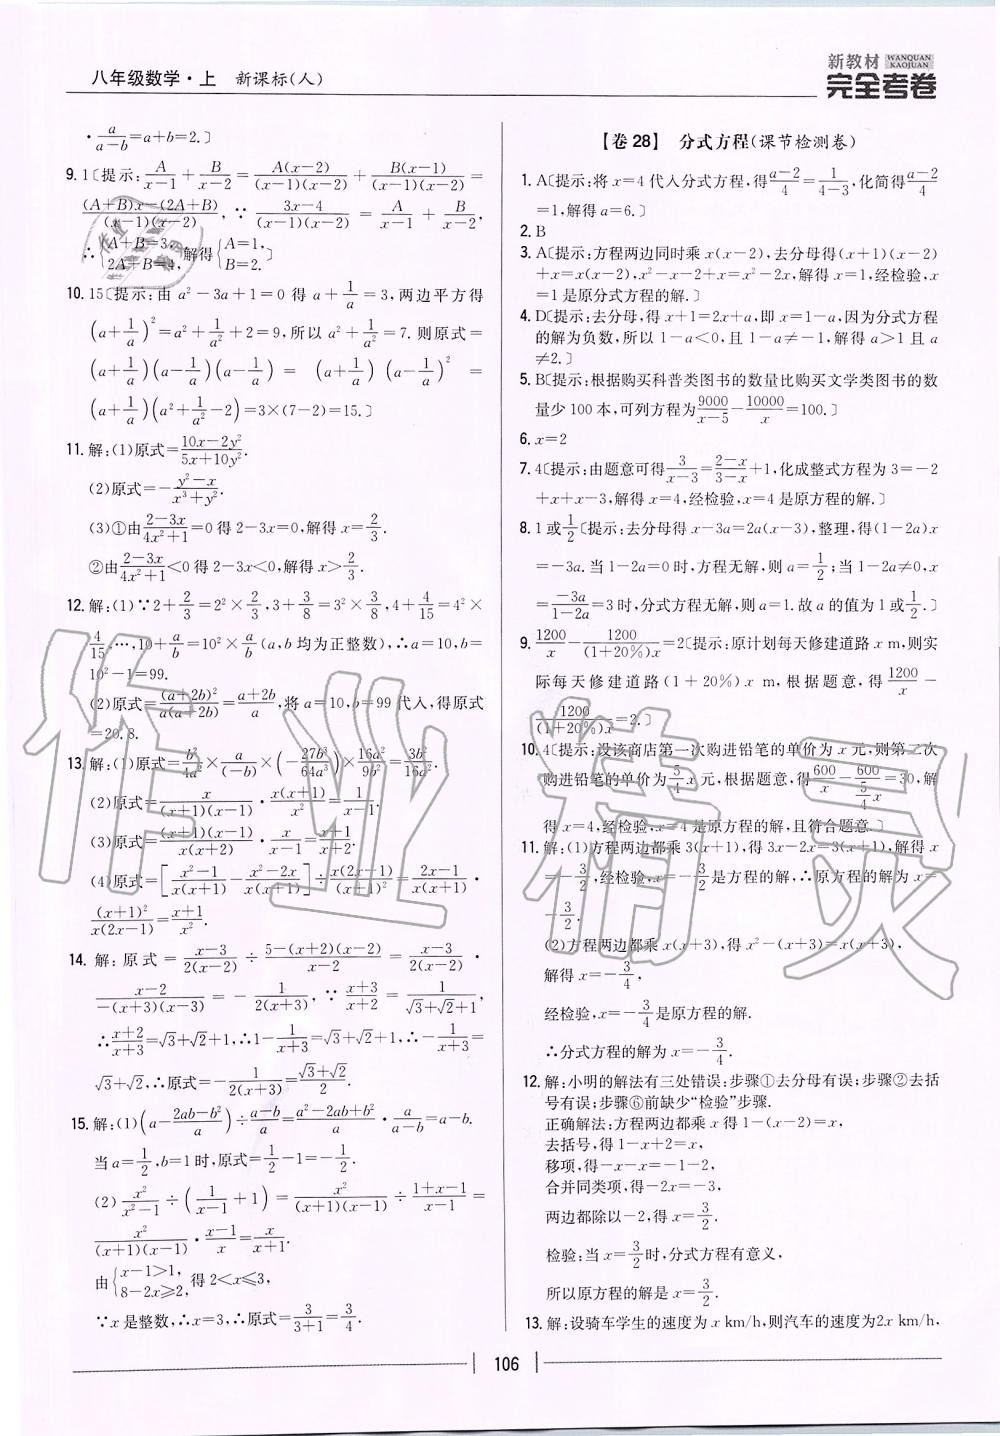 八年级数学·上 新课标(人)
新教材 WANQUAN KAOJUAN
完全考卷
·a/(a-b)=a+b=2.〕
9. 1〔提示:A/(x-1)+B/(x-2)=A(x-2)/((x-1)(x-2))+B(x-1)/((x-1)(x-2))=
((A+B)x-(2A+B))/((x-1)(x-2)),∵(3x-4)/((x-1)(x-2))=A/(x-1)+B/(x-2),
∴{A+B=3, 2A+B=4,解得{A=1, B=2.〕
10. 15〔提示:由 a²-3a+1=0 得 a+1/a=3,两边平方得
(a+1/a)²=a²+1/a²+2=9,所以 a²+1/a²=7.则原式=
(a+1/a)(a-1/a)(a-1/a)=(a+1/a)(a-1/a)²=
(a+1/a)(a²+1/a²-2)=3×(7-2)=15.〕
11. 解:(1)原式=(10x-2y²)/(5x+10y²).
(2)原式=-(y²-x)/(x³+y²).
(3)①由(2-3x)/(4x²+1)=0得2-3x=0,解得x=2/3.
②由(2-3x)/(4x²+1)<0得2-3x<0,解得x>2/3.
12. 解:(1)∵2+2/3=2²×2/3,3+3/8=3²×3/8,4+4/15=4²×
4/15,…,10+a/b=10²×a/b(a,b均为正整数),∴a=10,b=
10²-1=99.
(2)原式=(a+2b)²/(a(a+2b))=(a+2b)/a,将a=10,b=99代入,得原式
=20.8.
13. 解:(1)原式=b²/4a²×a/(-b)×(-27b³/64a³)×16a²/9b²=3b²/16a².
(2)原式=x/((x+1)(x-1))·x(x+1)/x²=1/(x-1).
(3)原式=(x+1)(x-1)/(x(x+2))·x/(x-1)=(x+1)/(x+2).
(4)原式=[(x²-1)/(x(x+1))-(x²-2x)/(x(x+1))]÷x(2x-1)/(x+1)²=(2x-1)/(x(x+1))·
(x+1)²/(x(2x-1))=(x+1)/x².
14. 解:原式=(x-3)/(2(x-2))÷(5-(x+2)(x-2))/(x-2)=(x-3)/(2(x-2))·
(x-2)/(-(x+3)(x-3))=-1/(2(x+3)),∵(x+3)/(x+2)=1/(√3+√2+1),
∴(x+2)/(x+3)=√3+√2+1,∴1-1/(x+3)=√3+√2+1,∴-1/(x+3)=
√3+√2,∴原式=-1/(2(x+3))=(√3+√2)/2.
15. 解:(1)(a-(2ab-b²)/a)÷(a-b)/a=(a²-2ab+b²)/a·a/(a-b)=a-b.
当a=1/2,b=1时,原式=1/2-1=-1/2.
(2)x²/(x²-1)÷(1/(x-1)+1)=x²/((x+1)(x-1))÷(1+x-1)/(x-1)=
x²/((x+1)(x-1))·(x-1)/x=x/(x+1).
由{x-1>1, 8-2x≥2,得2<x≤3,
∵x是整数,∴x=3,∴原式=3/(3+1)=3/4.
【卷28】 分式方程(课节检测卷)
1. A〔提示:将x=4代入分式方程,得(a-2)/4=1/(4-3),化简得(a-2)/4
=1,解得a=6.〕
2. B
3. A〔提示:方程两边同时乘x(x-2),去分母得(x+1)(x-2)
+x=x(x-2),x²-x-2+x=x²-2x,解得x=1,经检验,x
=1是原分式方程的解.〕
4. D〔提示:去分母,得x+1=2x+a,即x=1-a,因为分式方程
的解为负数,所以1-a<0,且1-a≠-1,解得a>1且a
≠2.〕
5. B〔提示:根据购买科普类图书的数量比购买文学类图书的数
量少100本,可列方程为9000/(x-5)-10000/x=100.〕
6. x=2
7. 4〔提示:由题意可得3/(x-3)=(2-x)/(3-x)+1,化成整式方程为3=-2
+x+x-3,解得x=4,经检验,x=4是原方程的解.〕
8. 1或1/2〔提示:去分母得x-3a=2a(x-3),整理,得(1-2a)x
=-3a.当1-2a=0时,方程无解,则a=1/2;当1-2a≠0,
x=-3a/(1-2a)=3时,分式方程无解,则a=1.故a的值为1或1/2.〕
9. 1200/x-1200/((1+20%)x)=2〔提示:原计划每天修建道路x m,则实
际每天修建道路(1+20%)x m,根据题意,得1200/x-
1200/((1+20%)x)=2.〕
10. 4〔提示:设该商店第一次购进铅笔的单价为x元,则第二次
购进铅笔的单价为5/4x元,根据题意,得600/x-600/(5/4x)=30,解
得x=4,经检验,x=4是原方程的解,且符合题意.〕
11. 解:(1)方程两边都乘3(x+1),得3x-2x=3(x+1),解得x
=-3/2,经检验,x=-3/2是方程的解,∴原方程的解为x=
-3/2.
(2)方程两边都乘x(x+3),得x²-(x+3)=x(x+3),
解得x=-3/4,
经检验,x=-3/4是原方程的解.
∴分式方程的解为x=-3/4.
12. 解:小明的解法有三处错误:步骤①去分母有误;步骤②去括
号有误;步骤⑥前缺少“检验”步骤.
正确解法:方程两边都乘x得1-(x-2)=x,
去括号,得1-x+2=x,
移项,得-x-x=-1-2,
合并同类项,得-2x=-3,
两边都除以-2,得x=3/2.
检验:当x=3/2时,分式方程有意义,
所以原方程的解是x=3/2.
13. 解:设骑车学生的速度为x km/h,则汽车的速度为2x km/h,
106
作业精灵